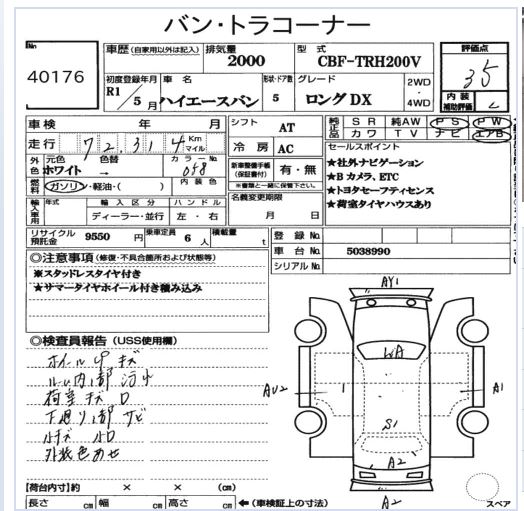 バン・トラコーナー
No 40176
車歴 (自家用以外は記入) 排気量 2000 型式 CBF-TRH200V
評価点 3.5
初度登録年月 R1/5月 車名 ハイエースバン 形状・ドア数 5 グレード ロングDX 2WD・4WD
内装補助評価
車検 年 月 シフト AT
純正品 SR 純AW PS PW
カワ TV ナビ エアB
走行 72,314 Km マイル
冷房 AC
セールスポイント
★社外ナビゲーション
★Bカメラ、ETC
★トヨタセーフティセンス
★荷室タイヤハウスあり
外色 元色 ホワイト 色替 → カラーNo 058
新車整備手帳(保証書付) 有・無
※書類と一緒に保管下さい。
燃料 ガソリン・軽油・( ) 内装色
名義変更期限 月 日
輸入車用 年式 輸入区分 ディーラー・並行 ハンドル 左・右
リサイクル預託金 9550 円 乗車定員 6 人 積載量 t
登録No.
車台No. 5038990
シリアルNo.
◎注意事項 (修復・不具合箇所および状態等)
※スタッドレスタイヤ付き
★サマータイヤホイール付き積み込み
◎検査員報告 (USS使用欄)
ホイールUPキズ
ルーム内、部汚れ
荷室キズ
下廻り、部サビ
外装色あせ
AY1
WA
AU2
1
A1
S1
A2
A2
スペア
【荷台内寸】約 × × (cm)
長さ cm 幅 cm 高さ cm ←(車検証上の寸法)